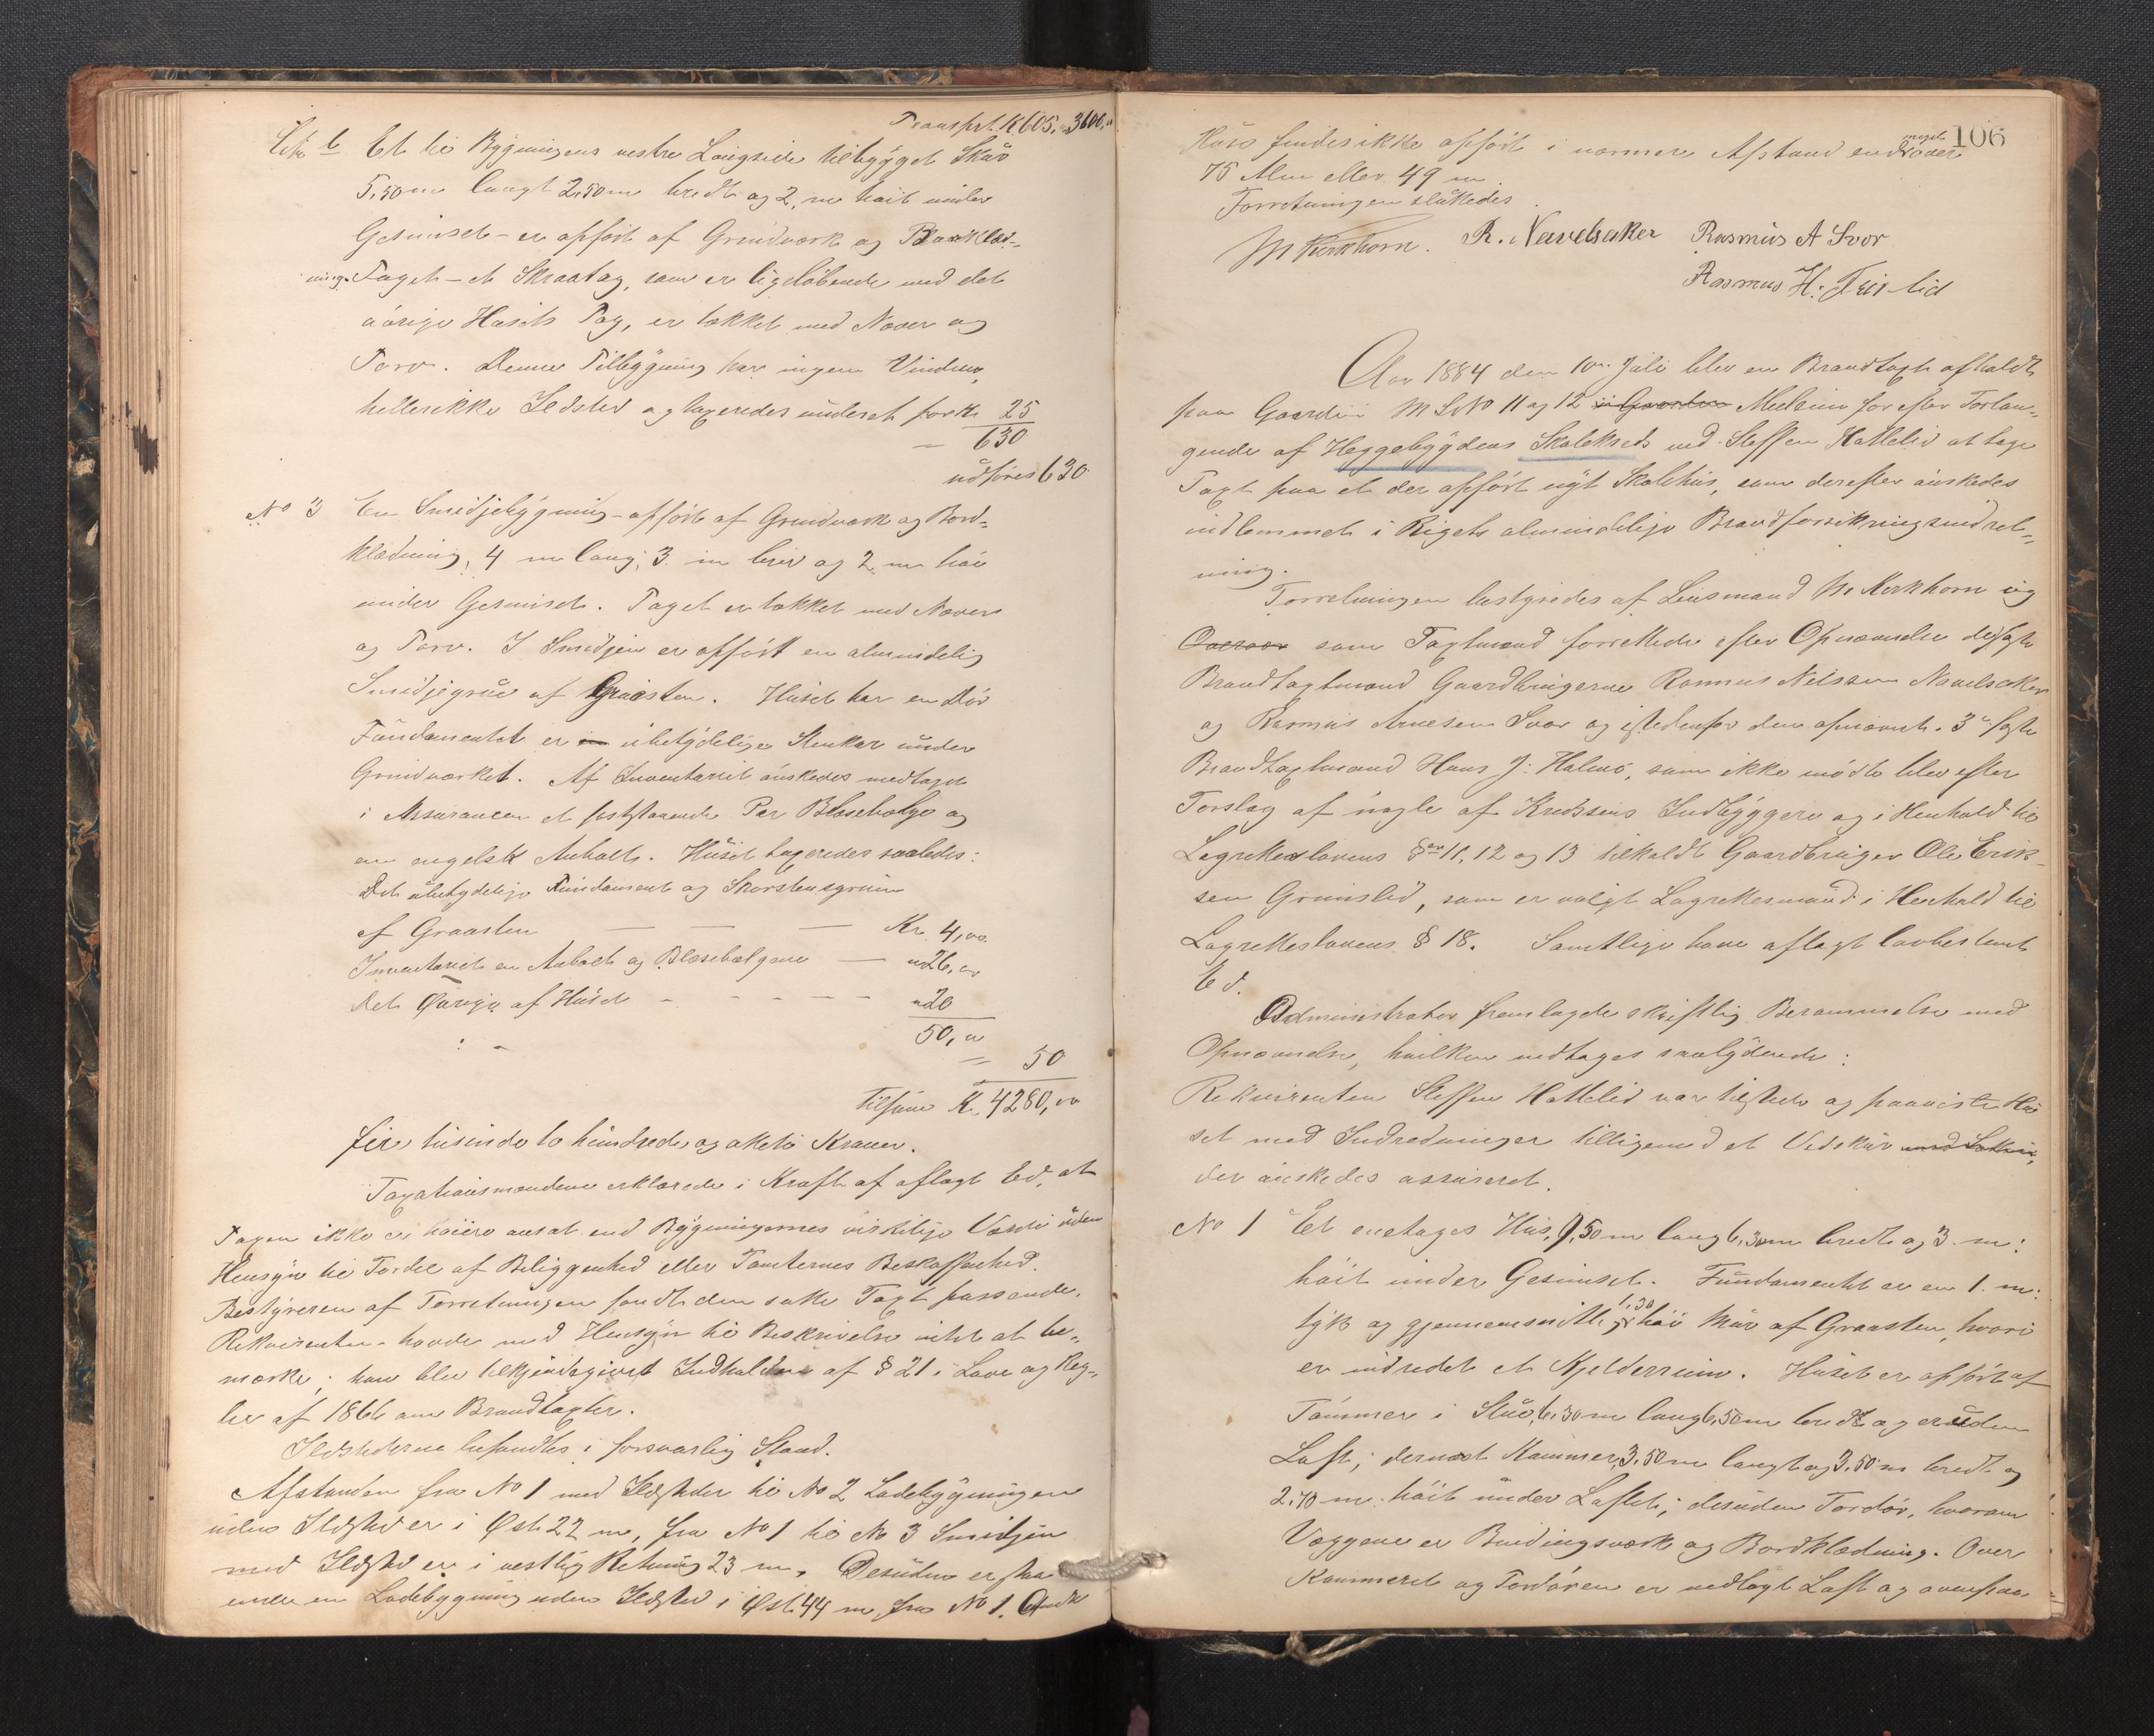 Transprt. K 605, 3600,"
Litr b Et til Bygningens vestre Langside tilbygget Skur
5,50 m langt 2,50 m bredt og 2, m høit under
Gesimset - er opført af Grindværk og Bordklæd-
ning. Taget - et Skraatag, som er ligeløbende med det
øvrige Husets Tag, er tækket med Næver og
Torv. Denne Tilbygning har ingen Vinduer,
heller ikke Ildsted og taxeredes underet for Kr. 25
— 630
udføres 630
No 3 En Smidjebygning - opført af Grindværk og Bord-
klædning, 4 m lang, 3 m bred og 2 m høi
under Gesimset. Taget er tækket med Næver
og Torv. I Smidjen er opført en almindelig
Smidjegrue af Graasten. Huset har en Dør
Fundamentet er ubetydelige Stenkar under
Grindværket. Af Inventariet ønskedes medtaget
i Assurancen et fastsstaaende Par Blæsebælge og
en engelsk Ambolt. Huset taxeredes saaledes:
Det ubetydelige Fundament og Skorstensgruen
af Graasten — — — Kr. 4,00
Inventariet en Ambolt og Blæsebælgene — " 26,00
Det Øvrige af Huset - - - - - " 20
50,"
— 50
Tilsam. Kr. 4280,00
fire tusinde to hundrede og otteti Kroner.
Taxationsmændene erklærede i Kraft af aflagt Ed, at
Taxen ikke er høiere ansat end Bygningernes virkelige Værdi uden
Hensyn til Fordel af Beliggenhed eller Tomternes Beskaffenhed.
Bestyreren af Forretningen fandt den satte Taxt passende.
Rekvirenten havde med Hensyn til Beskrivelse intet at be-
mærke; han blev tilkjendegivet Indholdet af § 21 i Love og Reg-
ler af 1866 om Brandtaxter.
Ildstederne befandtes i forsvarlig Stand.
Afstanden fra No 1 med Ildsteder til No 2 Ladebygningen
uden Ildsted er i Øst 22 m, fra No 1 til No 3 Smidjen
med Ildsted er i vestlig Retning 23 m, Desuden er staa
ende en Ladebygning uden Ildsted i Øst 44 m fra No 1. Andre
106
Huse findes ikke opført i nærmere Afstand end
75 Alen eller 49 m.
Forretningen sluttedes.
M Kirkhorn. R. Navelsaker Rasmus A Svor
Rasmus H: lid
Aar 1884 den 10de Juli blev en Brandtaxt afholdt
paa Gaarden M L No 11 og 12 i Gaarden for efter Forlan-
gende af Heggebygdens Skolekreds ved Steffen Hattelid at tage
Taxt paa et der opført nyt Skolehus, som derefter ønskedes
indlemmet i Rigets almindelige Brandforsikringsindret-
ning.
Forretningen bestyredes af Lensmand M. Kirkhorn og
Overvær som Taxtmænd forrettede efter Opnævnelse de faste
Brandtaxtmænd Gaardbrugerne Rasmus Nilssen Navelsaker
og Rasmus Arnesen Svor og istedenfor den opnævnte 3die faste
Brandtaxtmand Hans J. Holmø, som ikke mødte blev efter
Forslag af nogle af Kredsens Indbyggere og i Henhold til
Lagretteslovens §er 11, 12 og 13 tilkaldt Gaardbruger Ole Erik-
sen Grimslid, som er valgt Lagrettesmand i Henhold til
Lagretteslovens § 18. Samtlige have aflagt lovbestemt
Ed.
Administrator fremlagde skriftlig Berammelse med
Opnævnelse, hvilken vedtages saalydende:
Rekvirenten Steffen Hattelid var tilstede og paaviste Hu
set med Indredninger tilligemed et Vedskur
der ønskedes assureret.
No 1 Et enetages Hus, 9,50 m langt 6,30 m bredt og 3 m:
høit under Gesimset. Fundamentet er en 1 m:
tyk og gjennemsnitlig 1,30 høi Mur af Graasten, hvori
er indredet et Kjelderrum. Huset er opført af
Tømmer i Stue, 6,30 m lang 6,50 m bredt og er uden
Loft; dernæst Kammer 3,50 m langt og 3,50 m bredt og
2,70 m. høit under Loftet; desuden Fordør, hvoraf
Væggene er Bindingsværk og Bordklædning. Over
Kammeret og Fordøren er nedlagt Loft og ovenpaa